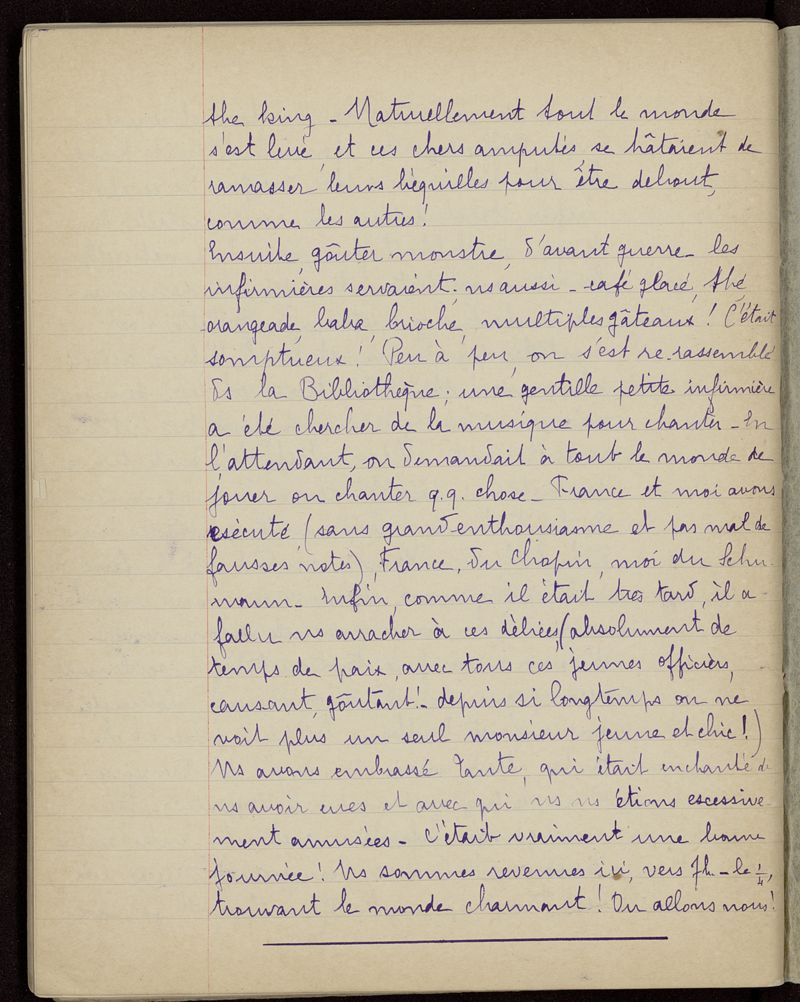 the king – Naturellement tout le monde
s'est levé, et ces chers amputés, se hâtaient de
ramasser leurs béquilles pour être debout,
comme les autres!
Ensuite, goûter monstre, d'avant guerre – les
infirmières servaient; ns aussi – café glacé, thé,
orangeade, baba, brioche, multiples gâteaux! C'était
somptueux! Peu à peu, on s'est re-rassemblé
ds la Bibliothèque; une gentille petite infirmière
a été chercher de la musique pour chanter – En
l'attendant, on demandait à tout le monde de
jouer ou chanter q.q. chose – France et moi avons
exécuté, (sans grand enthousiasme et pas mal de
fausses notes), France, du Chopin, moi du Schu-
mann – Enfin, comme il était très tard, il a
fallu ns arracher à ces délices, (absolument de
temps de paix, avec tous ces jeunes officiers,
causant, goûtant! – depuis si longtemps on ne
voit plus un seul monsieur jeune et chic!)
Ns avons embrassé Tante, qui était enchantée de
ns avoir eues et avec qui ns ns étions excessive-
ment amusées – C'était vraiment une bonne
journée! Ns sommes revenues ici, vers 7h – le 1/4,
trouvant le monde charmant! Où allons nous!